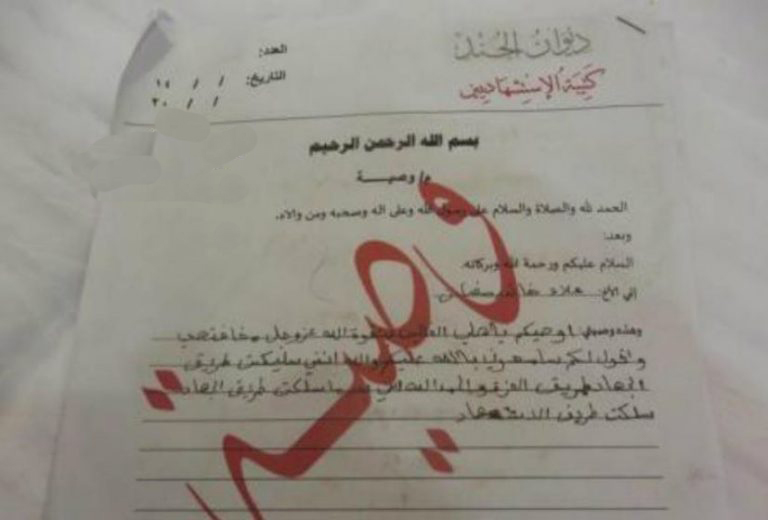 ديوان الجند
كتيبة الإستشهاديين
العدد:
التاريخ: / / ١٤
/ / ٢٠
بسم الله الرحمن الرحيم
م/ وصيـــــة
الحمد لله والصلاة والسلام على رسول الله وعلى اله وصحبه ومن والاه.
وبعد:
السلام عليكم ورحمة الله وبركاته.
إني الأخ: علاء
وهذه وصيتي: اوصيكم يا بتقوة الله عزوجل
واقول لكم بالله انني سلكت طريق
الجهاد طريق العزة و سلكت طريق الجهاد
سلكت طريق الاستشهاد
وصية